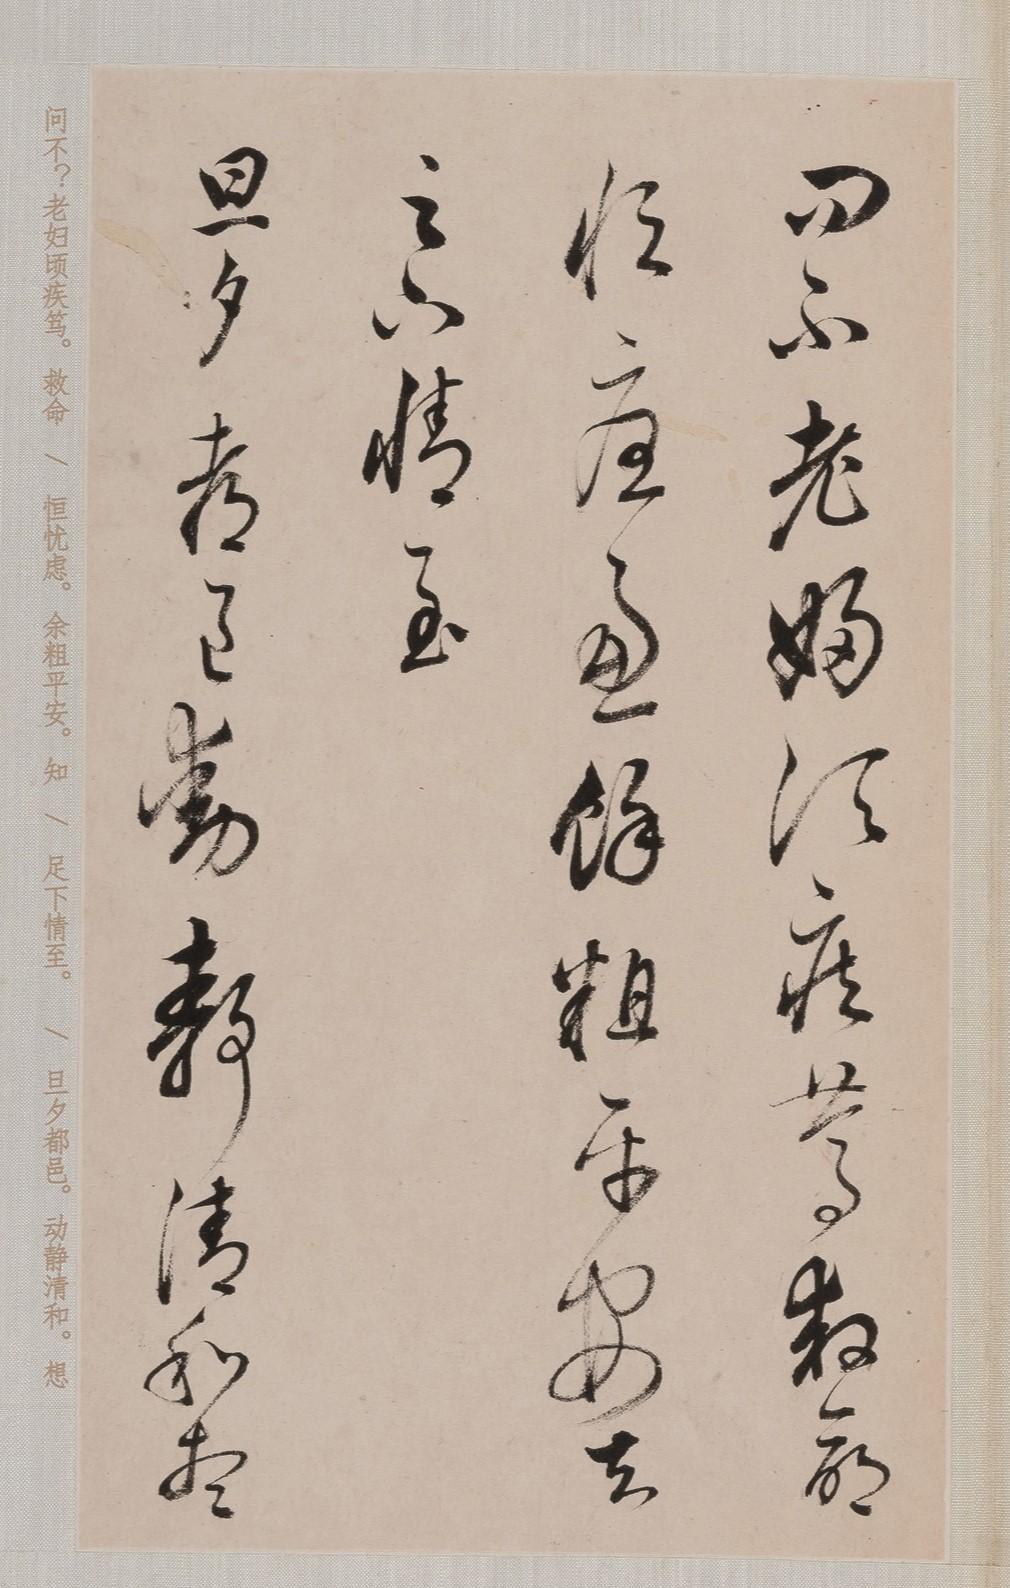 问不老妇顷疾笃救命
恒忧虑余粗平安知
足下情至
旦夕都邑动静清和想
问不？老妇顷疾笃。救命 / 恒忧虑。余粗平安。知 / 足下情至。 / 旦夕都邑。动静清和。想